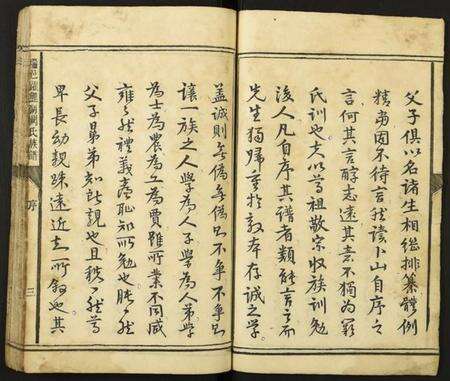 父子俱以名諸生相繼排纂體例
精當固不待言我讀卜山自序之
言何其言醇志遠其素不獨為羅
氏訓也夫以尊祖敬宗收族訓勉
後人凡自序其譜者類能言之而
先生獨歸重於敦本存誠之學
蓋誠則無偽無偽則不爭不爭則
讓一族之人學為人子學為人弟學
為士為農為工為賈雖所業不同咸
雍雍然禮義廉恥知所勉也肫肫然
父子昴弟知所親也且秩秩然尊
卑長幼親疎遠近知所敘也其
氏族譜
序
三